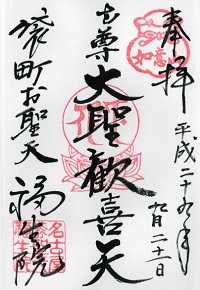 奉拝
如意
平成二十九年
九月二十一日
本尊
大聖歓喜天
袋町お聖天
福生院
名古屋
福生院